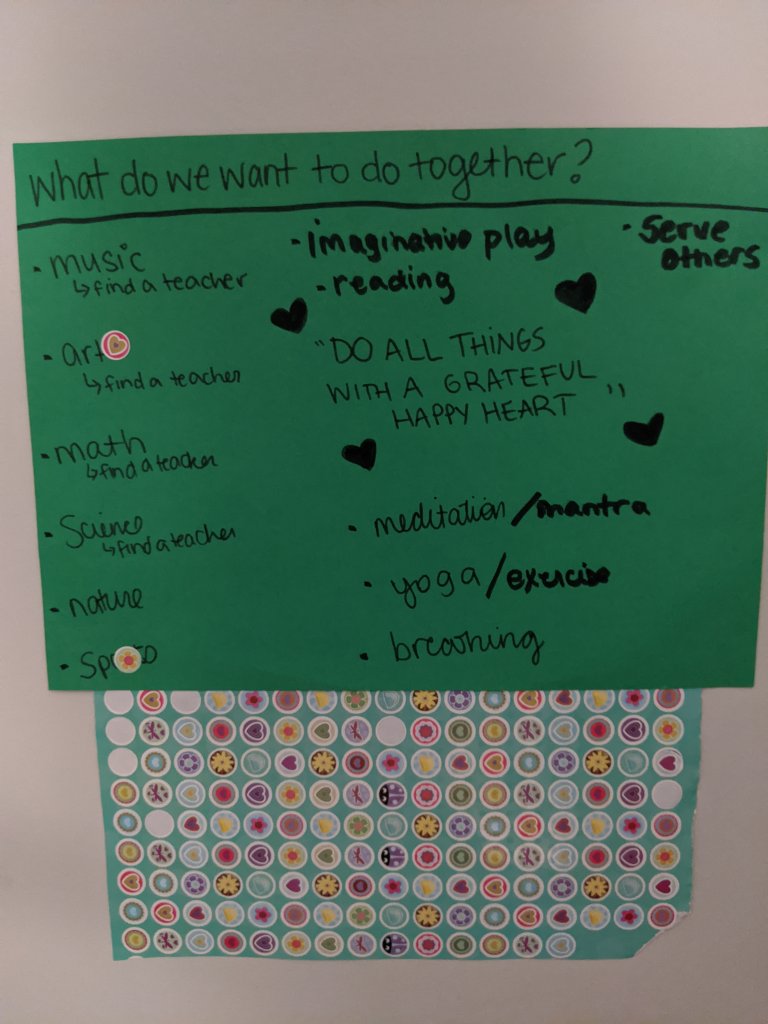 What do we want to do together?
• music
↳ find a teacher
• art
↳ find a teacher
• math
↳ find a teacher
• Science
↳ find a teacher
• nature
• imaginative play
• reading
"DO ALL THINGS
WITH A GRATEFUL
HAPPY HEART"
• meditation/mantra
• yoga/exercise
• breathing
• Serve
others